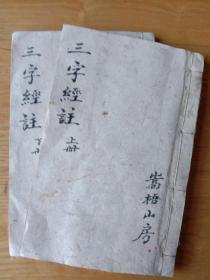 三字經註 上冊
嵩梧山房
三字經註 下冊